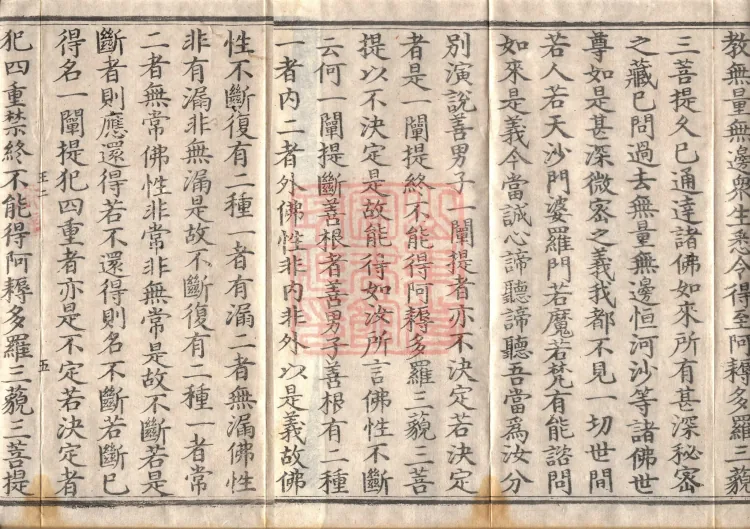 教無量無邊衆生悉令得至阿耨多羅三藐
三菩提久已通達諸佛如來所有甚深秘密
之藏已問過去無量無邊恒河沙等諸佛世
尊如是甚深微密之義我都不見一切世間
若人若天沙門婆羅門若魔若梵有能諮問
如來是義今當誠心諦聽諦聽吾當爲汝分
別演說善男子一闡提者亦不決定若決定
者是一闡提終不能得阿耨多羅三藐三菩
提以不決定是故能得如汝所言佛性不斷
云何一闡提斷善根者善男子善根有二種
一者內二者外佛性非內非外以是義故佛
性不斷復有二種一者有漏二者無漏佛性
非有漏非無漏是故不斷復有二種一者常
二者無常佛性非常非無常是故不斷若是
斷者則應還得若不還得則名不斷若斷已
得名一闡提犯四重者亦是不定若決定者
犯四重禁終不能得阿耨多羅三藐三菩提
五